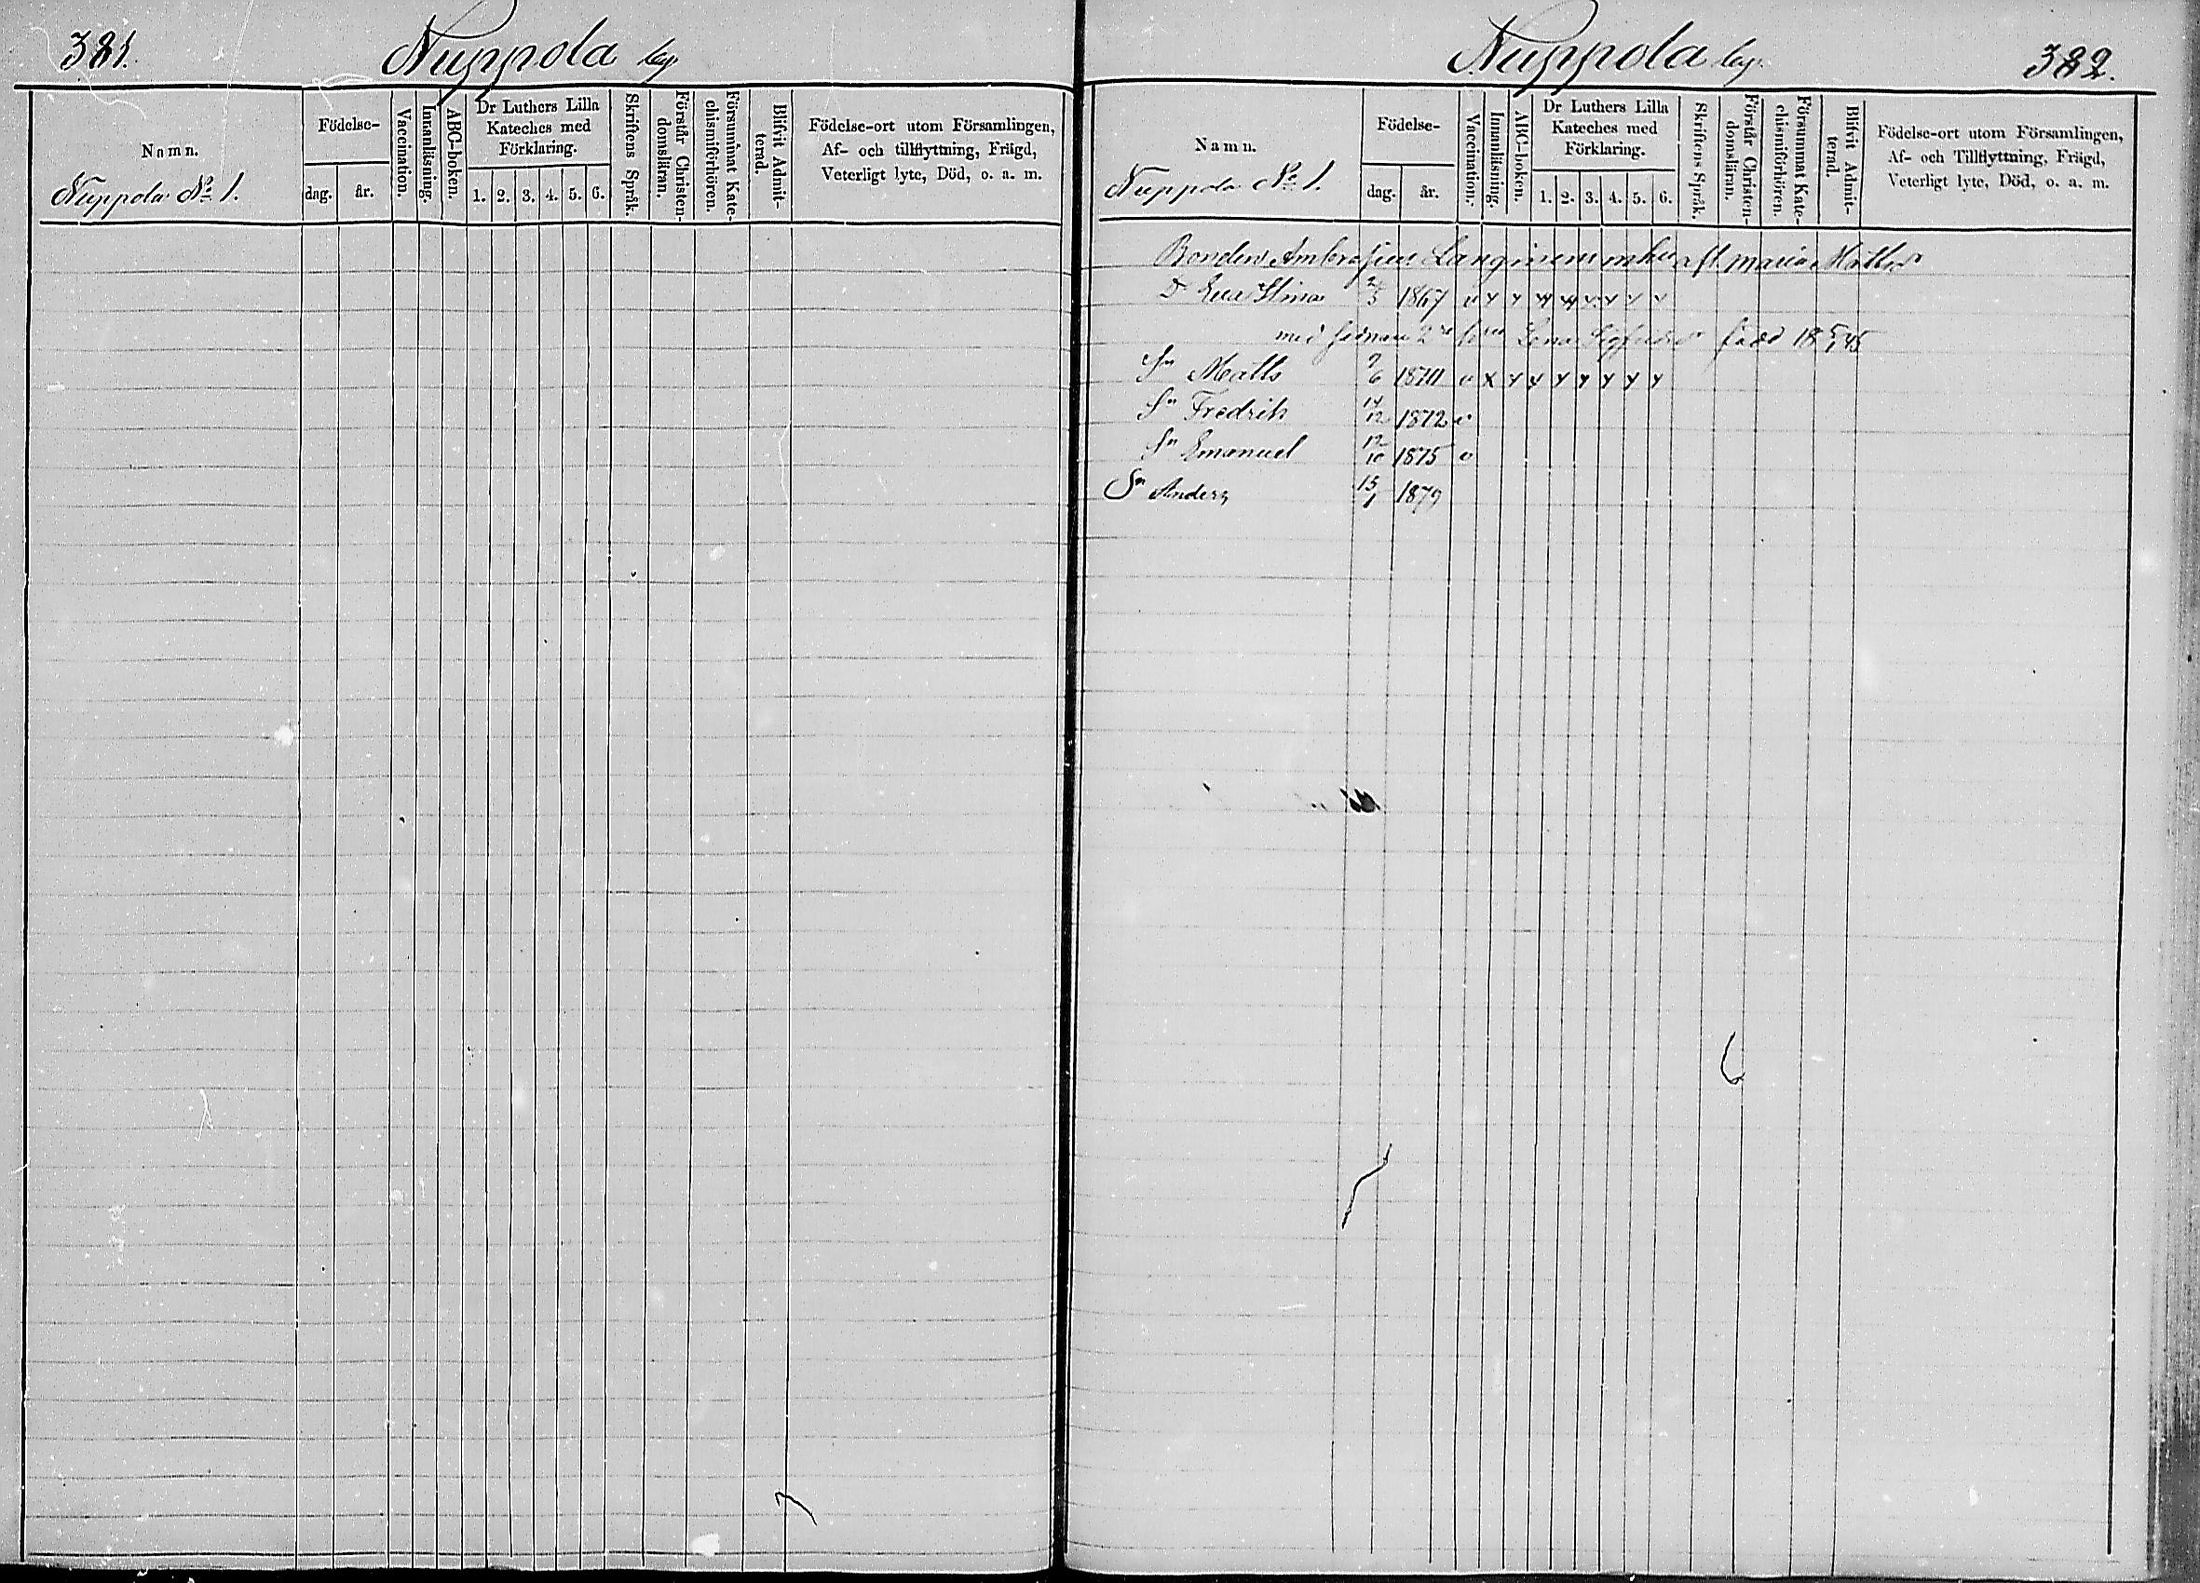 381.
Nuppola by
Namn.
Nuppola No 1.
Födelse-
dag. år.
Vaccination.
Innanläsning.
ABC-boken.
Dr Luthers Lilla
Kateches med
Förklaring.
1. 2. 3. 4. 5. 6.
Skriftens Språk.
Förstår Christen-
domsläran.
Försummat Kate-
chismiförhören.
Blifvit Admit-
terad.
Födelse-ort utom Församlingen,
Af- och tillflyttning, Frägd,
Veterligt lyte, Död, o. a. m.
Nuppola by.
382.
Namn.
Nuppola No 1.
Födelse-
dag. år.
Vaccination.
Innanläsning.
ABC-boken.
Dr Luthers Lilla
Kateches med
Förklaring.
1. 2. 3. 4. 5. 6.
Skriftens Språk.
Förstår Christen-
domsläran.
Försummat Kate-
chismiförhören.
Blifvit Admit-
terad.
Födelse-ort utom Församlingen,
Af- och Tillflyttning, Frägd,
Veterligt lyte, Död, o. a. m.
Bonden Ambrosius Langinen med Maria Mattsdr
D. Eva Stina 1867 v
med 2re Lena född 18 5/1 45
Sn Matts 9/6 1870 v
Sn Fredrik 14/12 1872 v
Sn Emanuel 12/10 1875 v
Sn Anders 15/1 1879